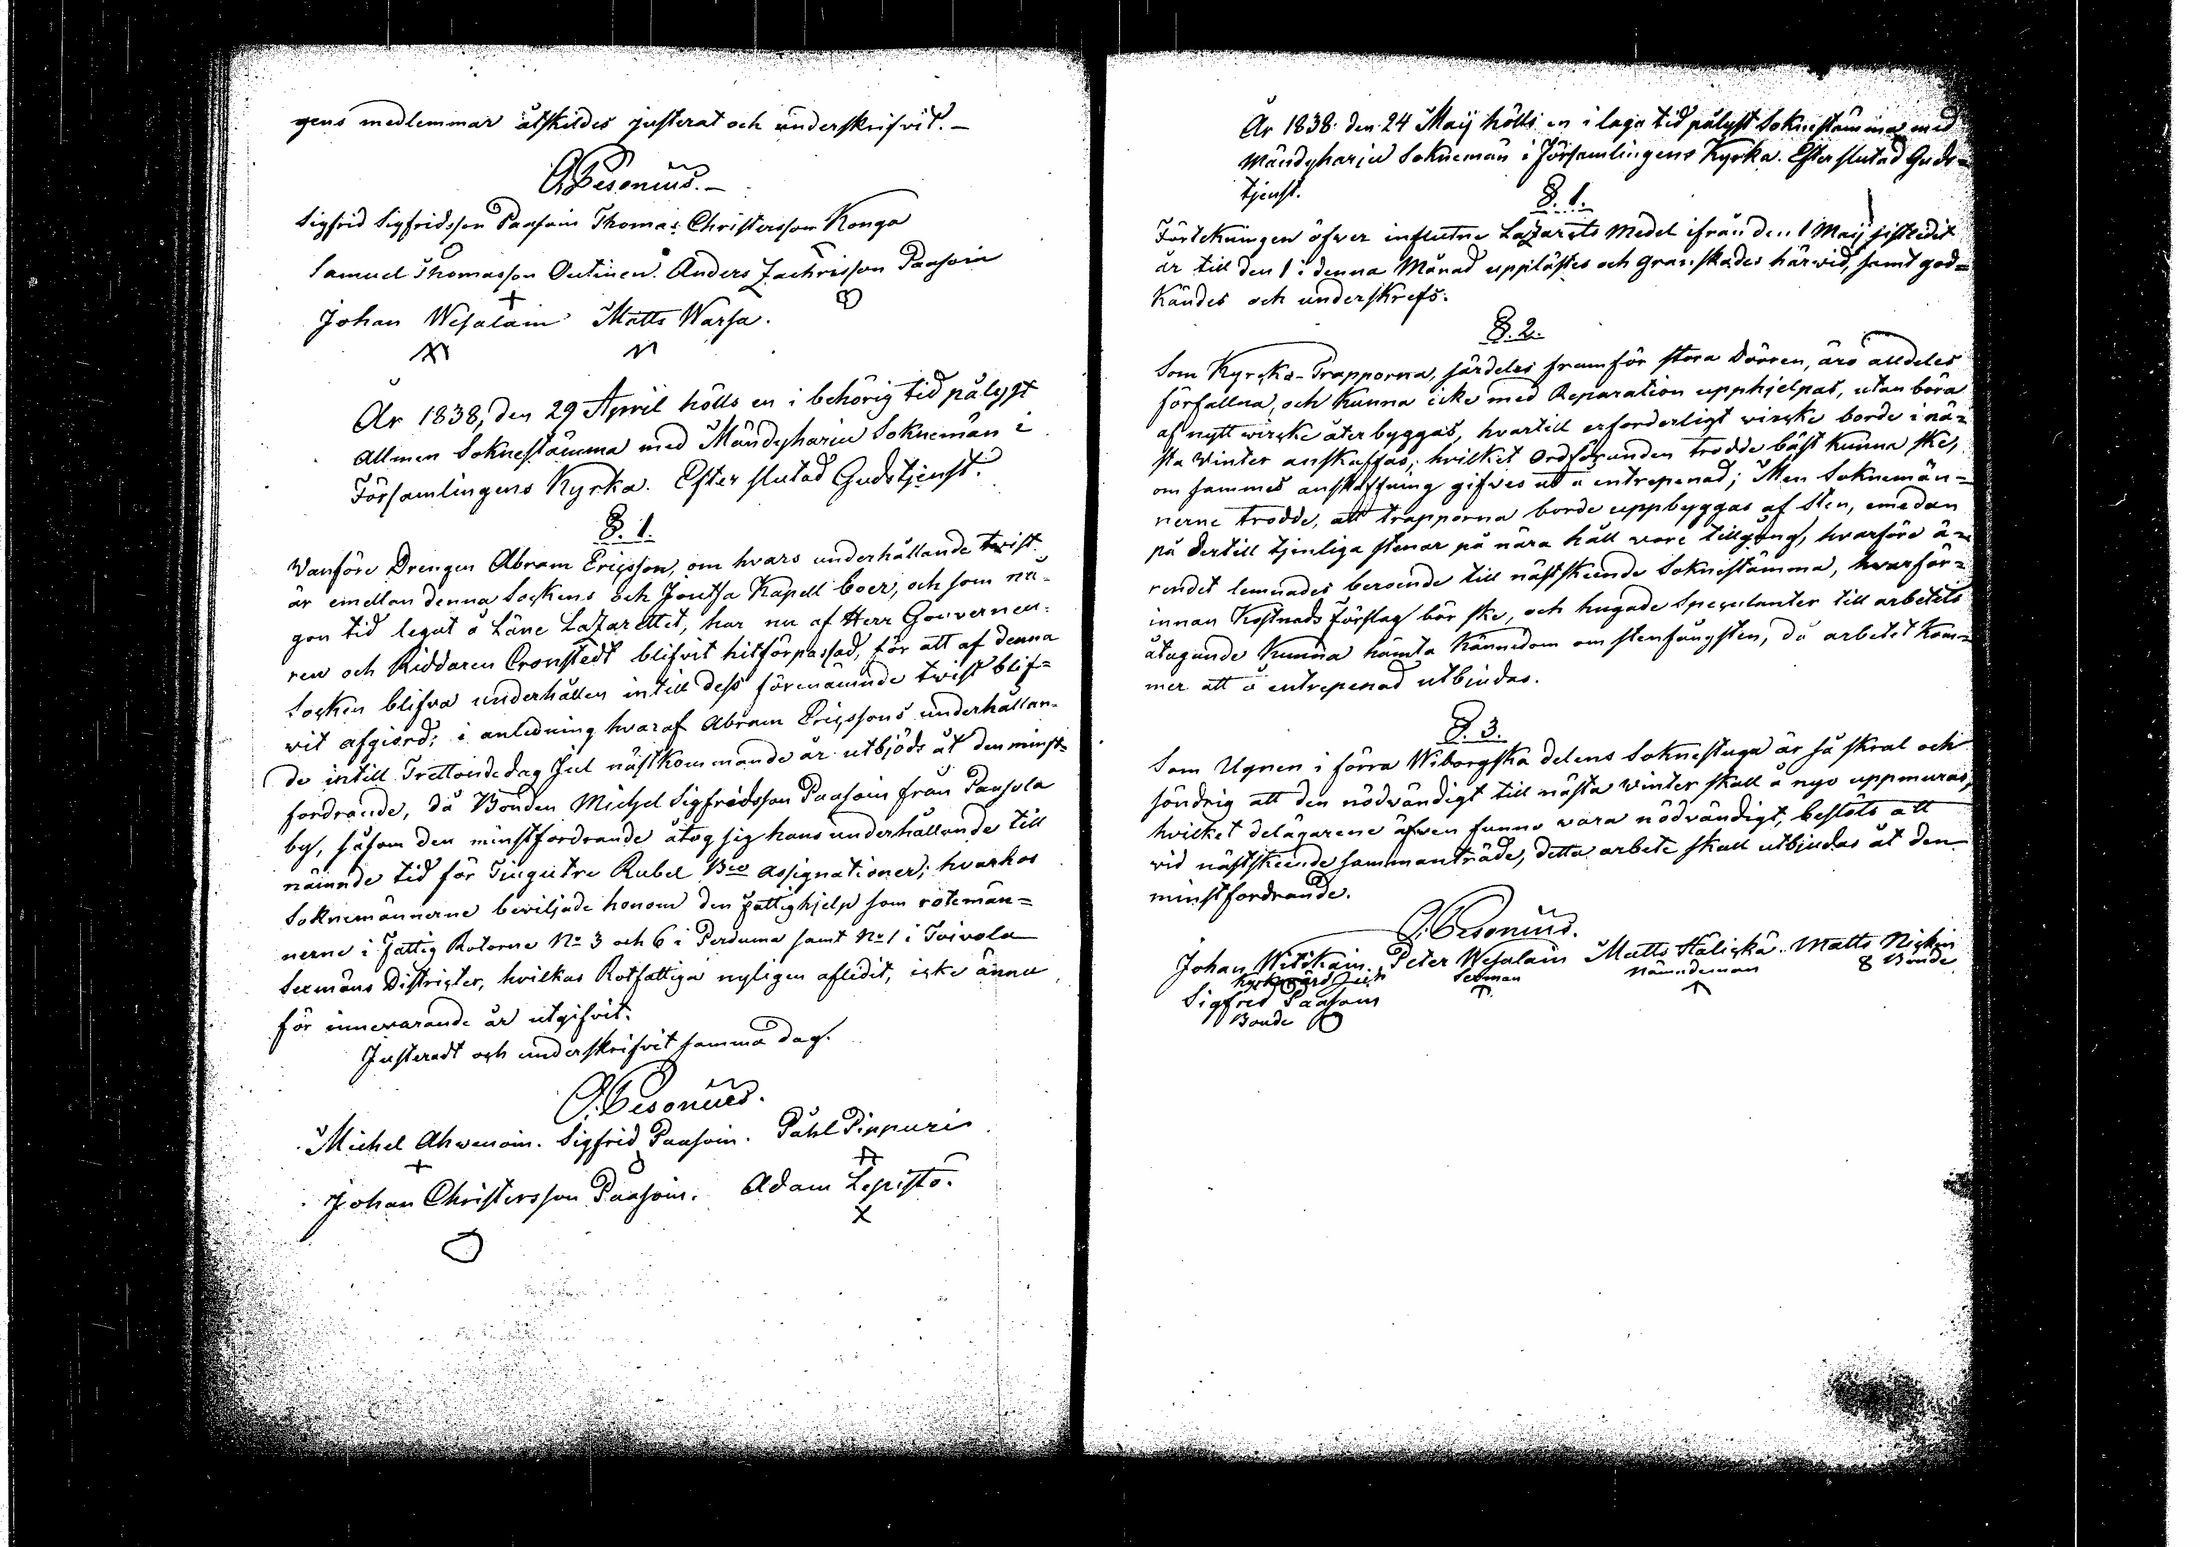 gens medlemmar åtskildes justerat och underskrifvit. –
C. Cesonius. –
Sigfrid Sigfridsson Paasoin Thomas Christersson Konga
Samuel Thomasson Outinen. Anders Zachrisson Paasoin
Johan Wesalain Matts Warsa.
År 1838, den 29 April hölls en i behörig tid pålyst
allmen Soknestämma med Mändyharju Soknemän i
Församlingens Kyrka. Efter slutad Gudstjenst.
§. 1.
Vanföre Drengen Abram Ericsson, om hvars underhållande twist
är emellan denna Sockens och Joutsa Kapell boer, och som nå-
gon tid legat å Läne Lazarettet, har nu af Herr Gouverneu-
ren och Riddaren Cronstedt blifvit hitförpassad, för att af denna
Socken blifva underhållen intill dess förenämnde twist blif=
vit afgiord; i anledning hvaraf Abram Ericssons underhållan-
de intill Trettondedag Jul nästkommande år utbjöds åt den minst-
fordrande, då Bonden Michel Sigfridsson Paasoin från Paasola
by, såsom den minstfordrande åtog sig hans underhållande till
nämnde tid för Tiugutre Rubel Bco Assignationer; hvarhos
Soknemännerne beviljade honom den fattighjelp som rotemän=
nerne i Fattig Rotorne No 3 och 6 i Perduma samt No 1 i Toivola
Sexmäns Districter, hvilkas Rotfattiga nyligen aflidit, icke ännu
för innevarande år utgifvit.
Justeradt och underskrifvit samma dag.
C. Cesonius.
Michel Ahwenoin. Sigfrid Paasoin. Påhl Pippuri
Johan Christersson Paasoin. Adam Lepistö.
År 1838 den 24 Maij hölls en i laga tid pålyst Soknestämma med
Mändyharju Soknemän i Församlingens Kyrka. Efter slutad Guds=
tjenst.
§. 1.
Förtekningen öfwer influtne Lazaretts Medel ifrån den 1 Maij sistledit
år till den 1 i denna Månad upplästes och granskades härwid, samt god=
kändes och underskrefs.
§. 2.
Som Kyrcko-Trapporna, särdeles framför stora Dörren, äro alldeles
förfallna, och kunna icke med Reparation upphjelpas, utan böra
af nytt wircke återbyggas, hvartill erforderligt wircke borde i nä-
sta Winter anskaffas, hvilket Ordföranden trodde bäst kunna ske,
om sammes anskaffning gifves ut å entrepenad; Men Soknemän=
nerne trodde, att trapporna borde uppbyggas af Sten, emedan
på dertill tjenliga stenar på nära håll wore tillgång, hvarföre ä-
rendet lemnades beroende till nästskeende Soknestämma, hvarför-
innan Kostnads Förslag bör ske, och hugade Speculanter till arbetets
åtagande kunna hämta kännedom om stenfångsten, då arbetet kom-
mer att å entrepenad utbjudas.
§. 3.
Som Ugnen i förra Wiborgska delens Soknestuga är så skral och
söndrig att den nödvändigt till nästa winter skall å nyo uppmuras,
hvilket delägarene äfwen funno vara nödvändigt, beslöts att
vid nästskeende sammanträde, detta arbete skall utbjudas åt den
minstfordrande.
C. Cesonius.
Johan Witikain. Peter Wesalain Matts Hälickä. Matts Nickin
Sexman Nämndeman Bonde
Sigfred Paasoin
Bonde